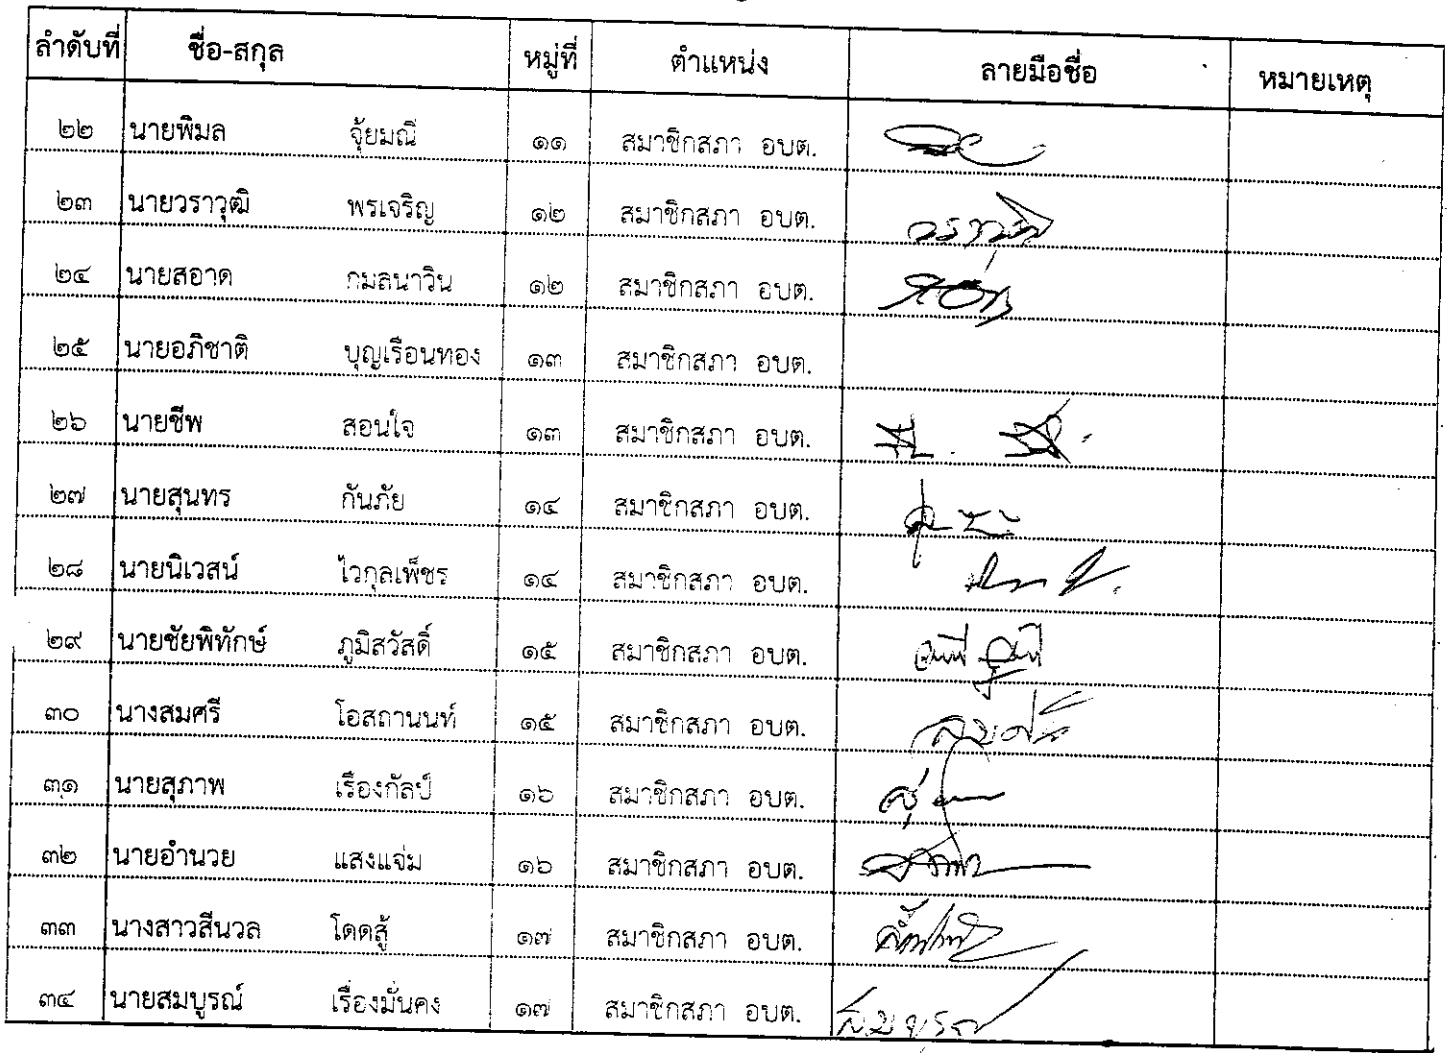 ลำดับที่ ชื่อ-สกุล หมู่ที่ ตำแหน่ง ลายมือชื่อ หมายเหตุ
๒๒ นายพิมล จุ้ยมณี ๑๑ สมาชิกสภา อบต.
๒๓ นายวราวุฒิ พรเจริญ ๑๒ สมาชิกสภา อบต. วราวุฒิ
๒๔ นายสอาด กมลนาวิน ๑๒ สมาชิกสภา อบต.
๒๕ นายอภิชาติ บุญเรือนทอง ๑๓ สมาชิกสภา อบต.
๒๖ นายชีพ สอนใจ ๑๓ สมาชิกสภา อบต.
๒๗ นายสุนทร กันภัย ๑๔ สมาชิกสภา อบต.
๒๘ นายนิเวสน์ ไวกุลเพ็ชร ๑๔ สมาชิกสภา อบต.
๒๙ นายชัยพิทักษ์ ภูมิสวัสดิ์ ๑๕ สมาชิกสภา อบต.
๓๐ นางสมศรี โอสถานนท์ ๑๕ สมาชิกสภา อบต. สมศรี
๓๑ นายสุภาพ เรืองกัลป์ ๑๖ สมาชิกสภา อบต.
๓๒ นายอำนวย แสงแจ่ม ๑๖ สมาชิกสภา อบต.
๓๓ นางสาวสีนวล โดดสู้ ๑๗ สมาชิกสภา อบต.
๓๔ นายสมบูรณ์ เรืองมั่นคง ๑๗ สมาชิกสภา อบต. สมบูรณ์